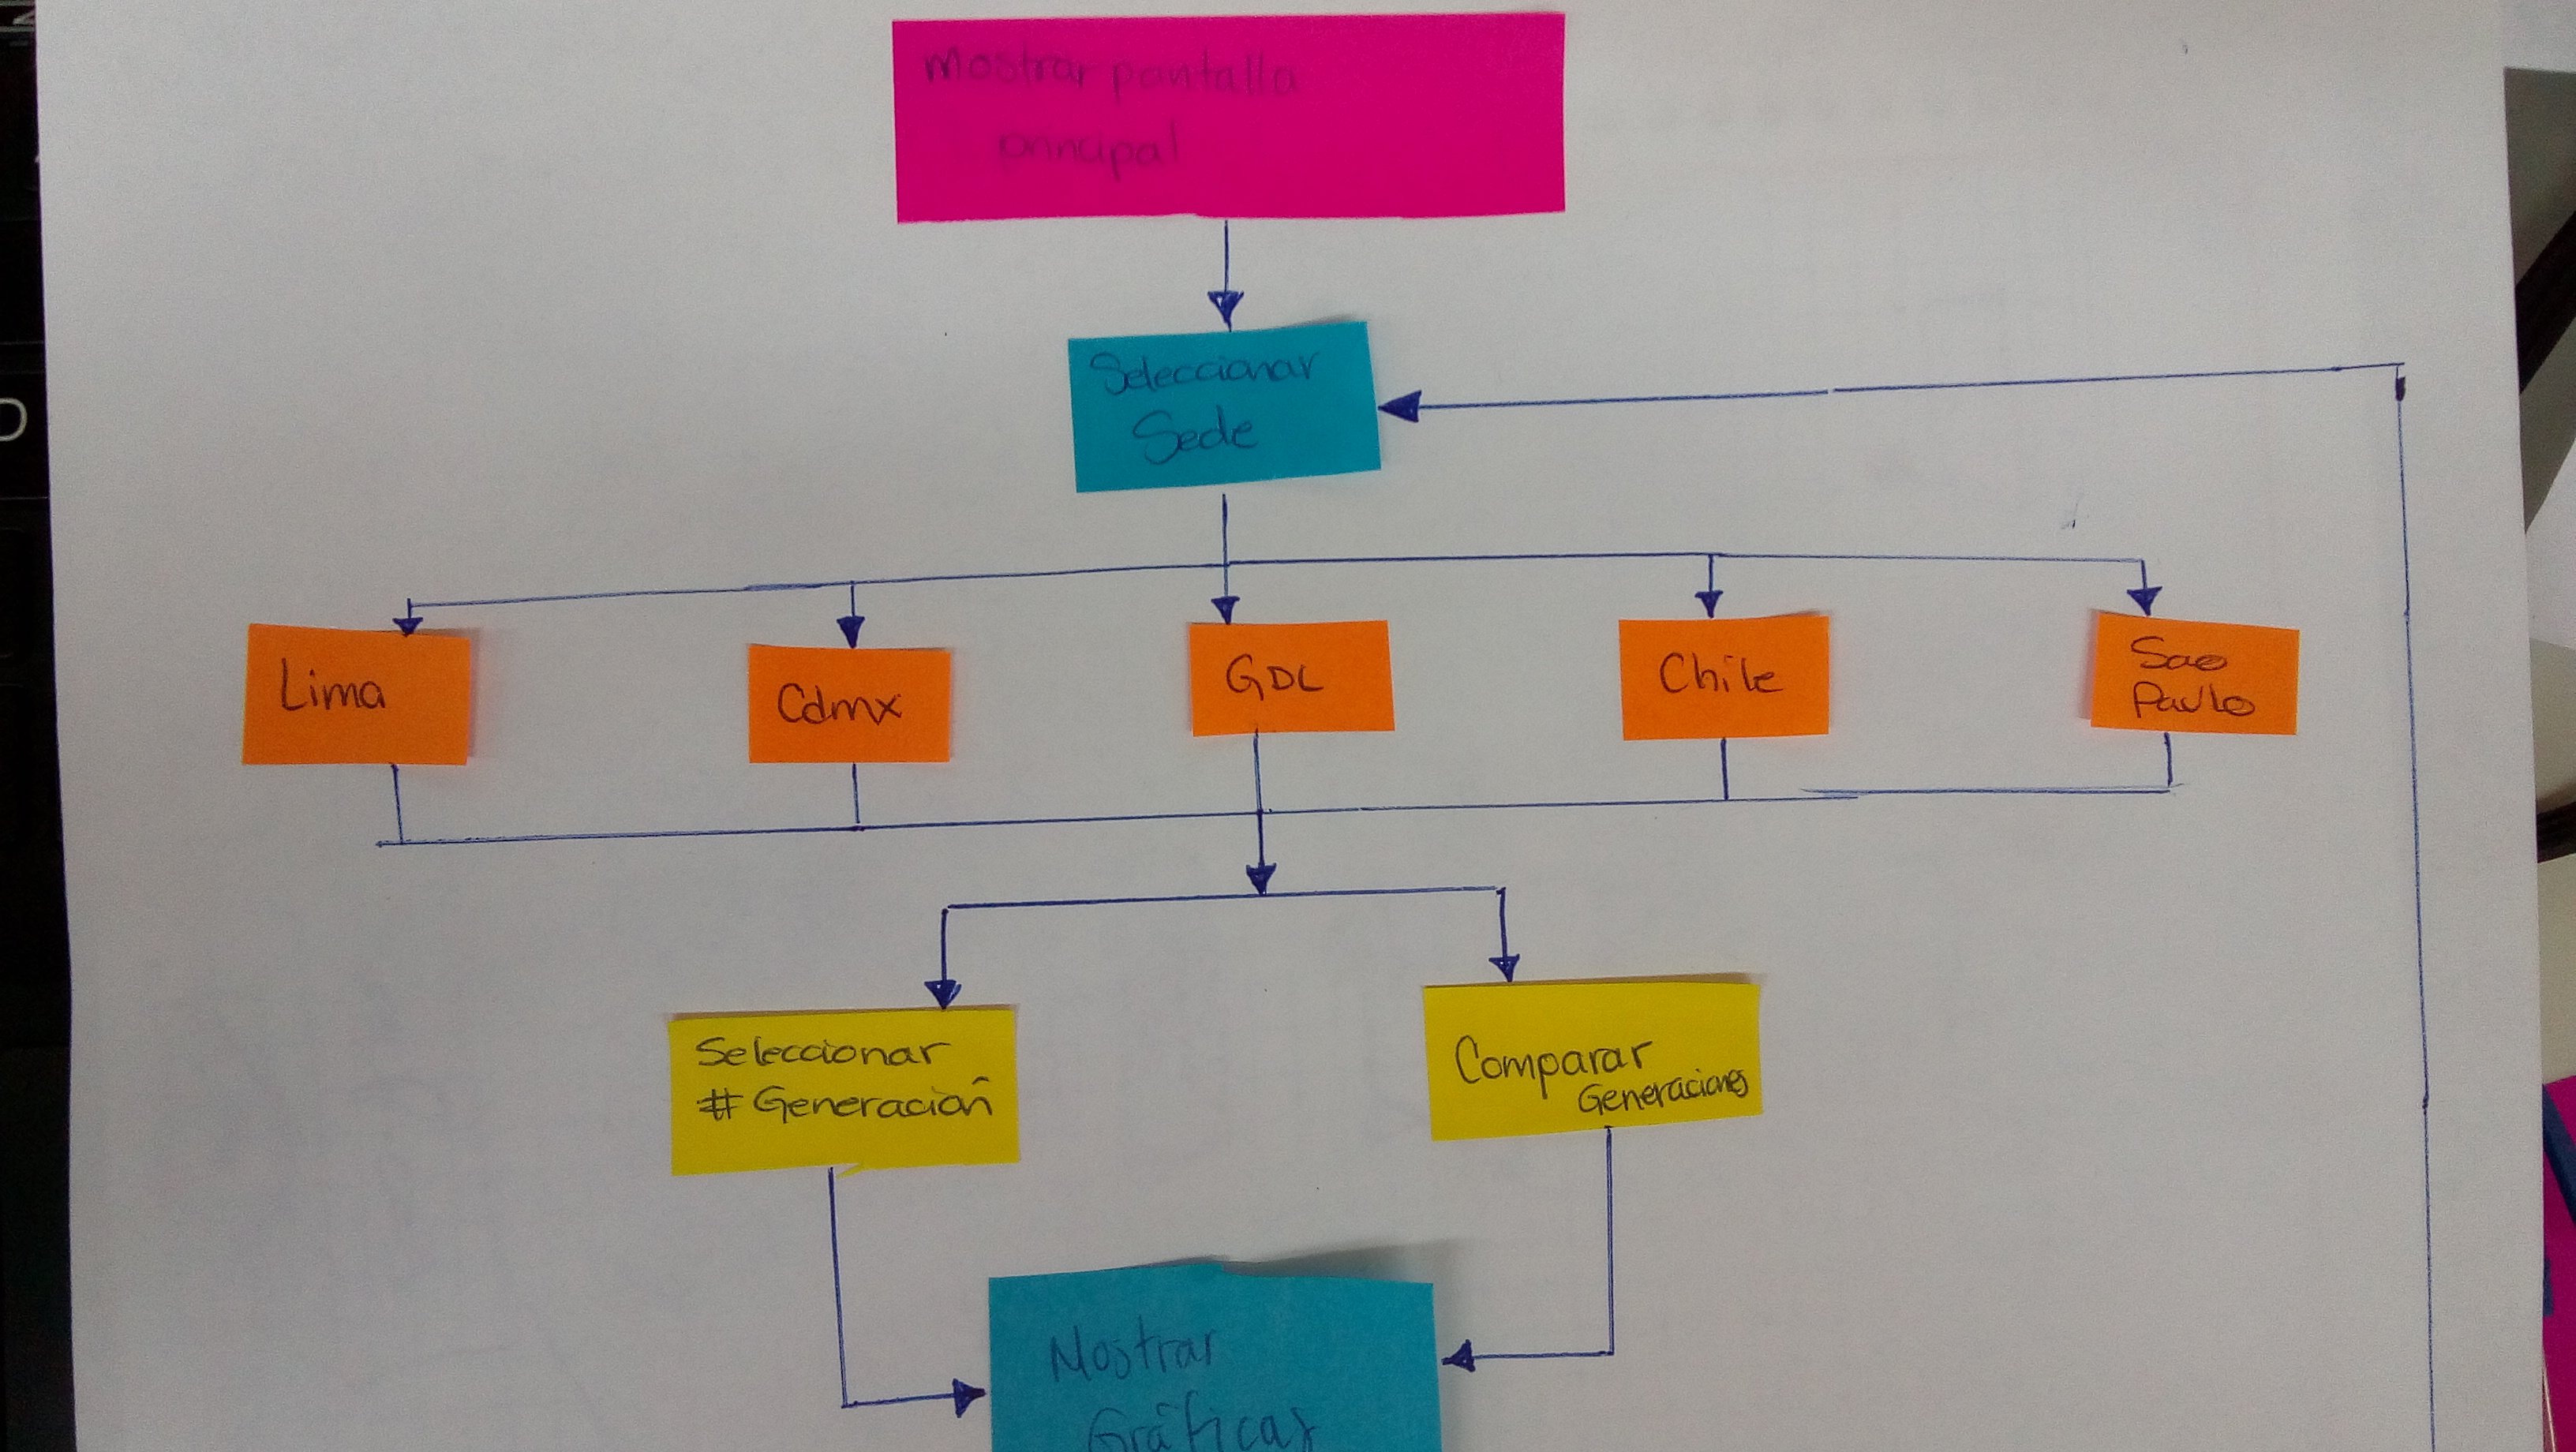 mostrar pantalla
principal
Seleccionar
Sede
Lima
Cdmx
GDL
Chile
Sao
Paulo
Seleccionar
# Generación
Comparar
Generaciones
Mostrar
Gráficas